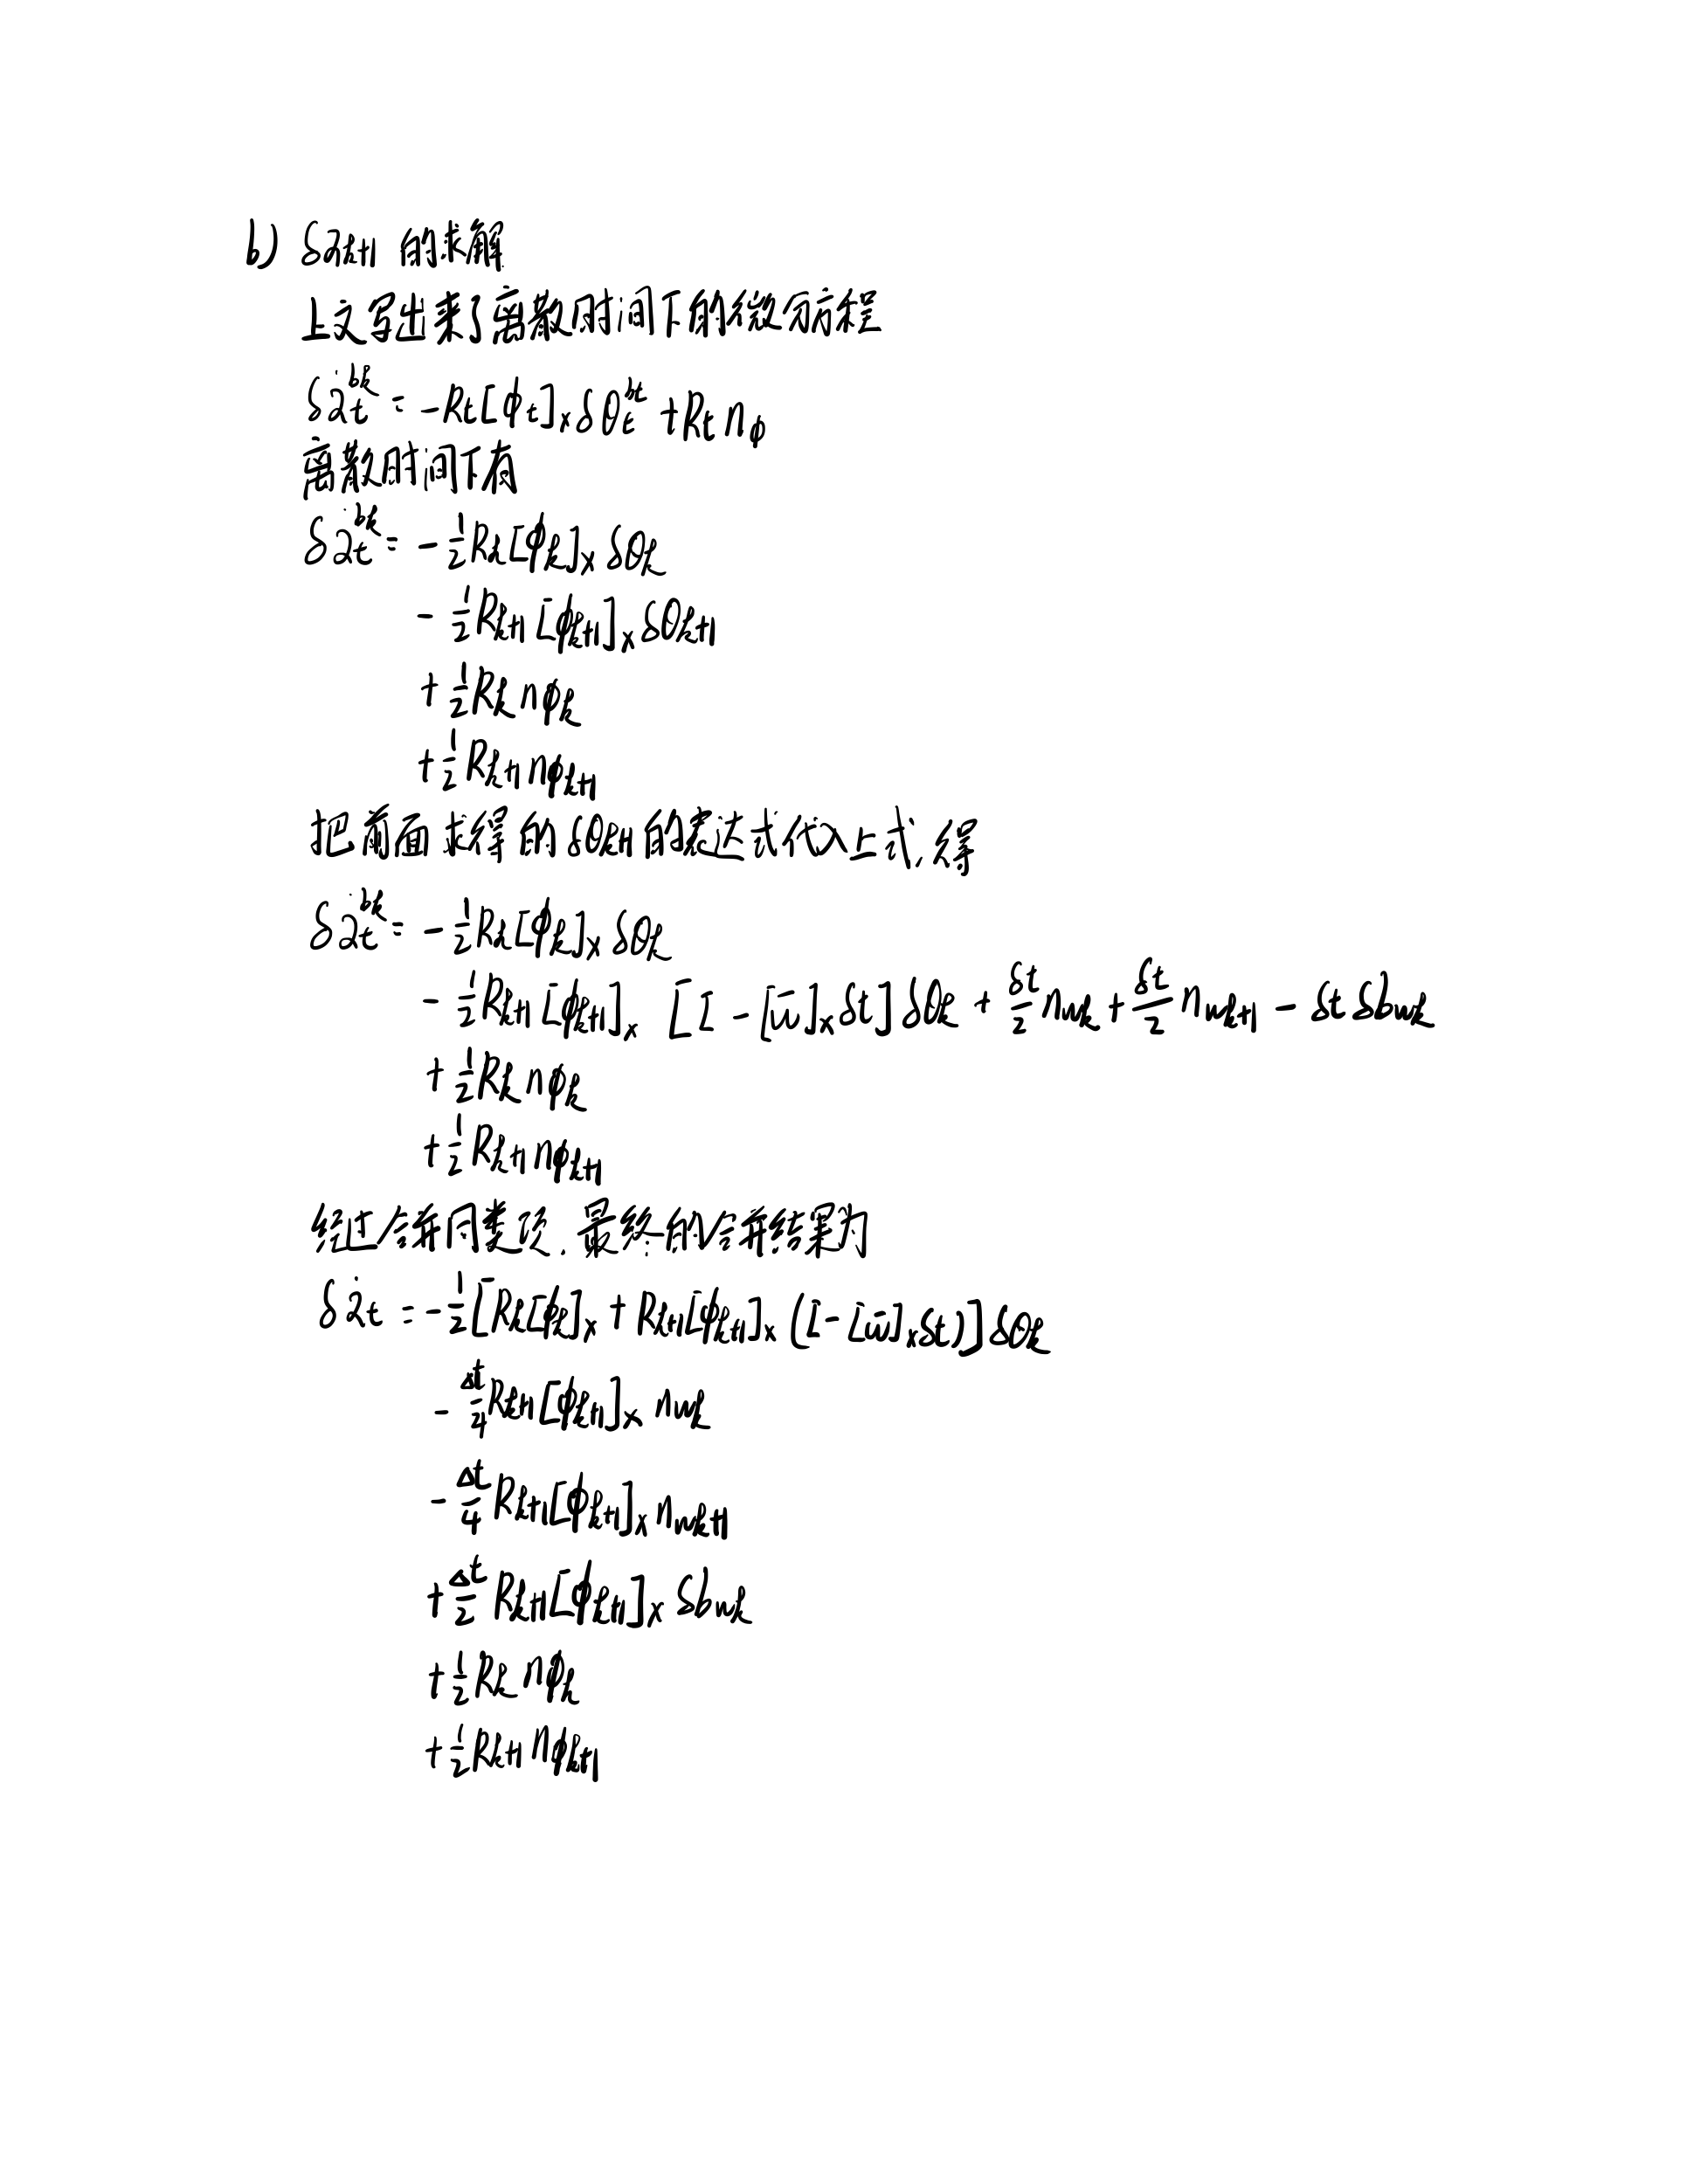 b) δλₖ₊₁ 的求解
上文写出来了离散时间下的微分方程
δλ̇ₜᵇᵏ = -Rₜ[ϕₜ]ₓδθₜᵇᵗ + Rₜ n_ϕ
离散时间下有
δλ̇ₜᵇᵏ = - ½Rₖ[ϕₖ]ₓ δθₖ
- ½Rₖ₊₁[ϕₖ₊₁]ₓδθₖ₊₁
+ ½Rₖ nϕₖ
+ ½Rₖ₊₁ nϕₖ₊₁
把前面求得的 δθₖ₊₁ 的表达式代入上式,得
δλ̇ₜᵇᵏ = - ½Rₖ[ϕₖ]ₓ δθₖ
- ½Rₖ₊₁[ϕₖ₊₁]ₓ [I - [w̄]ₓδt] δθₖ + δt/2 n_wₖ + δt/2 n_wₖ₊₁ - δt δb_wₖ
+ ½Rₖ nϕₖ
+ ½Rₖ₊₁ nϕₖ₊₁
经过合并同类项,最终的合并结果为
δλ̇ₜ = -½[Rₖ[ϕₖ]ₓ + Rₖ₊₁[ϕₖ₊₁]ₓ (I - [w̄]ₓδt)] δθₖ
- Δt/4 Rₖ₊₁[ϕₖ₊₁]ₓ n_wₖ
- Δt/4 Rₖ₊₁[ϕₖ₊₁]ₓ n_wₖ₊₁
+ Δt/2 Rₖ₊₁[ϕₖ₊₁]ₓ δb_wₖ
+ ½Rₖ nϕₖ
+ ½Rₖ₊₁ nϕₖ₊₁